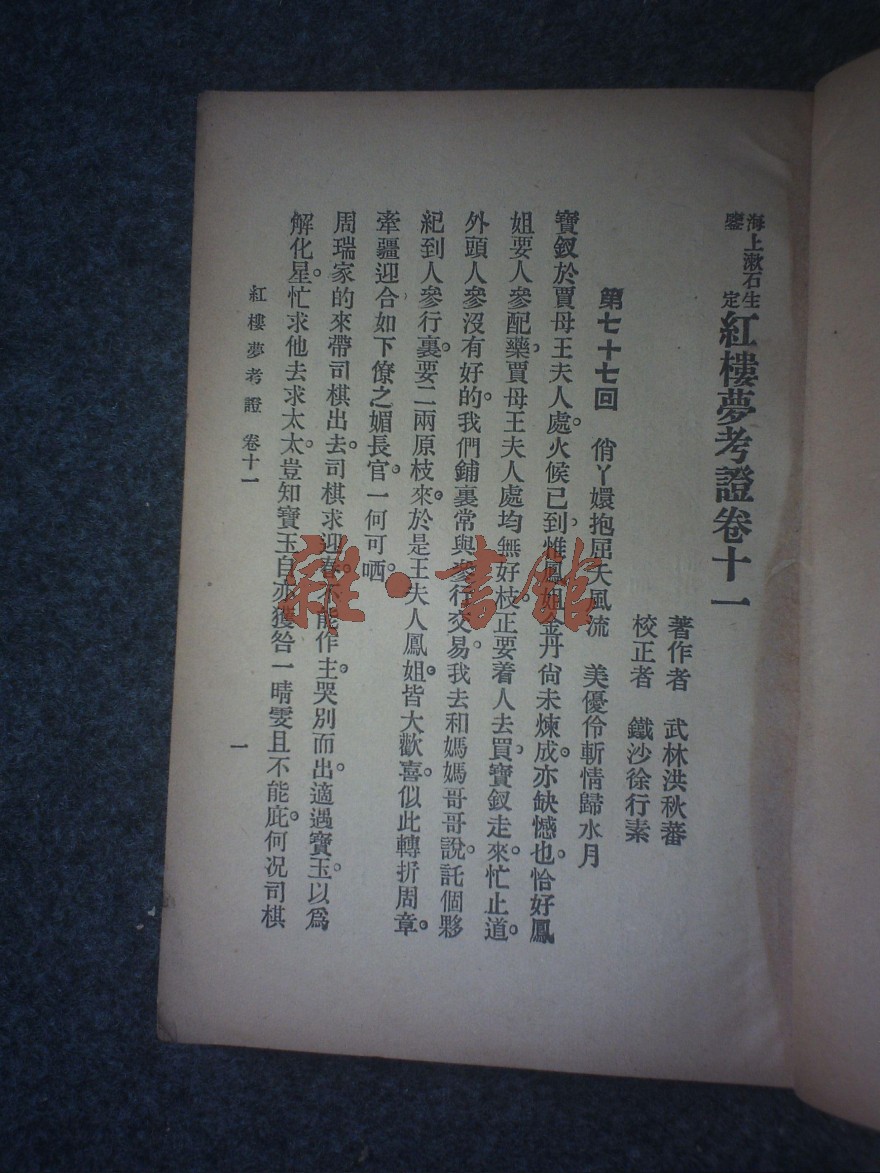 海上漱石生鑒定
紅樓夢考證卷十一
著作者 武林洪秋蕃
校正者 鐵沙徐行素
第七十七回 俏丫嬛抱屈夭風流 美優伶斬情歸水月
寶釵於賈母王夫人處。火候已到。惟鳳姐金丹尙未煉成。亦缺憾也。恰好鳳
姐要人參配藥。賈母王夫人處均無好枝。正要着人去買。寶釵走來。忙止道。
外頭人參沒有好的。我們鋪裏常與參行交易。我去和媽媽哥哥說。託個夥
紀到人參行裏。要二兩原枝來。於是王夫人鳳姐皆大歡喜。似此轉折周章。
牽疆迎合。如下僚之媚長官。一何可哂。
周瑞家的來帶司棋出去。司棋求迎春。不能作主。哭別而出。適遇寶玉。以爲
解化星。忙求他去求太太。豈知寶玉自亦獲咎。一晴雯且不能庇。何况司棋
紅樓夢考證 卷十一
一
雜·書館